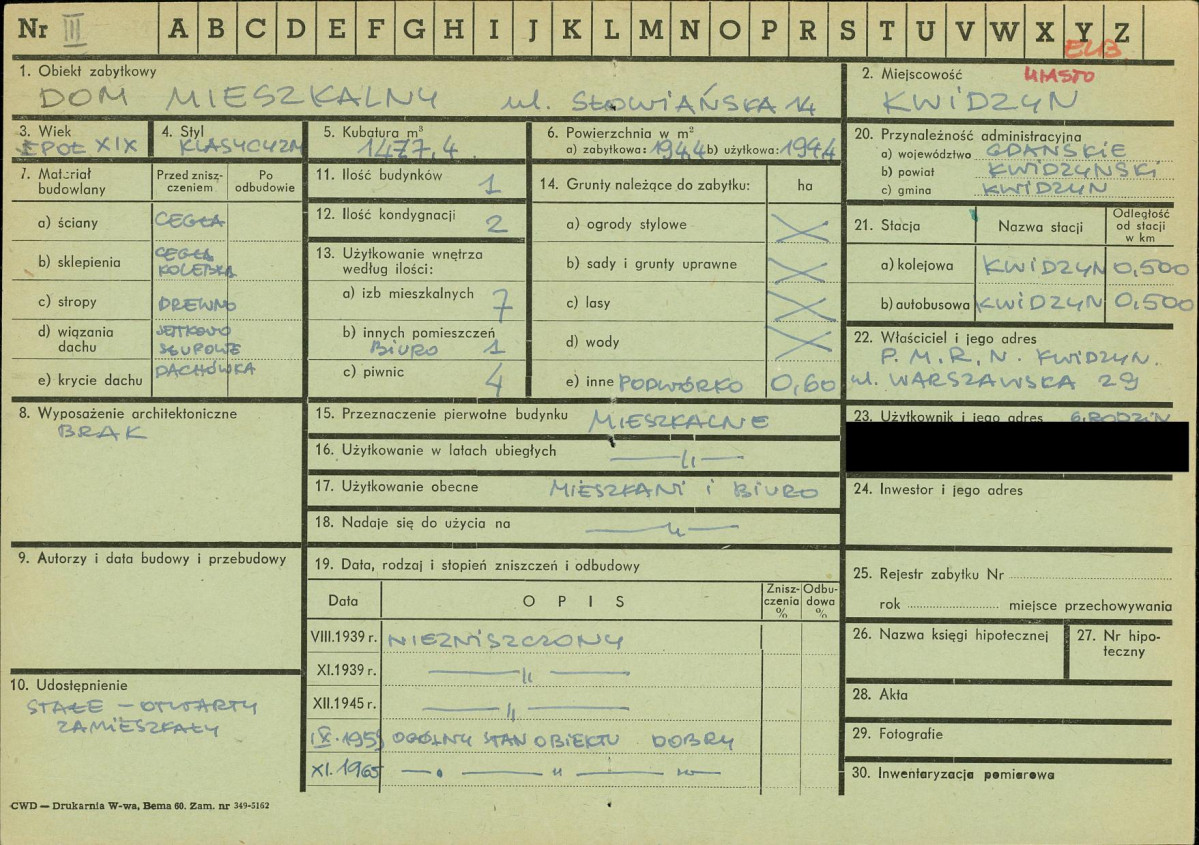 Nr III A B C D E F G H I J K L M N O P R S T U V W X Y Z
ELB
1. Obiekt zabytkowy
DOM MIESZKALNY ul. SŁOWIAŃSKA 14
2. Miejscowość MIASTO
KWIDZYN
3. Wiek
I POŁ XIX
4. Styl
KLASYCYZM
5. Kubatura m³
1477,4
6. Powierzchnia w m²
a) zabytkowa: 194,4 b) użytkowa: 194,4
7. Materiał budowlany
Przed zniszczeniem
Po odbudowie
a) ściany CEGŁA
b) sklepienia CEGŁA KOLEBKA
c) stropy DREWNO
d) wiązania dachu JĘTKOWO SŁUPOWE
e) krycie dachu DACHÓWKA
8. Wyposażenie architektoniczne
BRAK
9. Autorzy i data budowy i przebudowy
10. Udostępnienie
STAŁE – OTWARTY
ZAMIESZKAŁY
11. Ilość budynków 1
12. Ilość kondygnacji 2
13. Użytkowanie wnętrza
według ilości:
a) izb mieszkalnych 7
b) innych pomieszczeń
BIURO 1
c) piwnic 4
14. Grunty należące do zabytku: ha
a) ogrody stylowe
b) sady i grunty uprawne
c) lasy
d) wody
e) inne PODWÓRKO 0,60
15. Przeznaczenie pierwotne budynku MIESZKALNE
16. Użytkowanie w latach ubiegłych — 〃 —
17. Użytkowanie obecne MIESZKANI I BIURO
18. Nadaje się do użycia na — 〃 —
19. Data, rodzaj i stopień zniszczeń i odbudowy
Data O P I S Zniszczenia % Odbudowa %
VIII.1939 r. NIEZNISZCZONY
XI.1939 r. — 〃 —
XII.1945 r. — 〃 —
IX.1959 OGÓLNY STAN OBIEKTU DOBRY
XI.1965 — 〃 — 〃 — 〃 —
20. Przynależność administracyjna
a) województwo GDAŃSKIE
b) powiat KWIDZYŃSKI
c) gmina KWIDZYN
21. Stacja Nazwa stacji Odległość od stacji w km
a) kolejowa KWIDZYN 0,500
b) autobusowa KWIDZYN 0,500
22. Właściciel i jego adres
P. M. R. N. KWIDZYN
ul. WARSZAWSKA 29
23. Użytkownik i jego adres 6 RODZIN
24. Inwestor i jego adres
25. Rejestr zabytku Nr
rok miejsce przechowywania
26. Nazwa księgi hipotecznej
27. Nr hipoteczny
28. Akta
29. Fotografie
30. Inwentaryzacja pomiarowa
CWD — Drukarnia W-wa, Bema 60. Zam. nr 349-5162